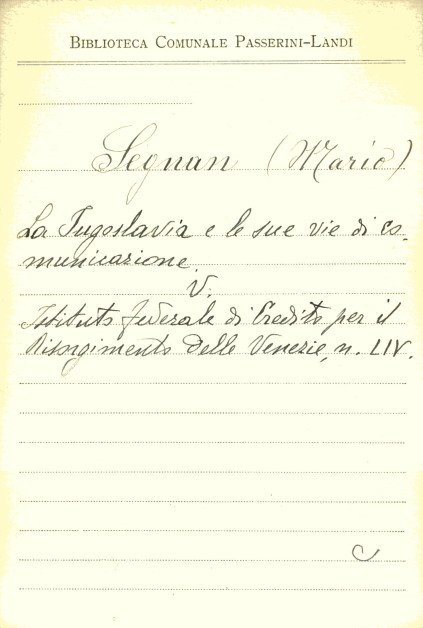 BIBLIOTECA COMUNALE PASSERINI-LANDI
Segnan (Mario)
La Jugoslavia e le sue vie di co-
municazione.
V.
Istituto federale di Credito per il
Risorgimento delle Venezie, n. LIV.